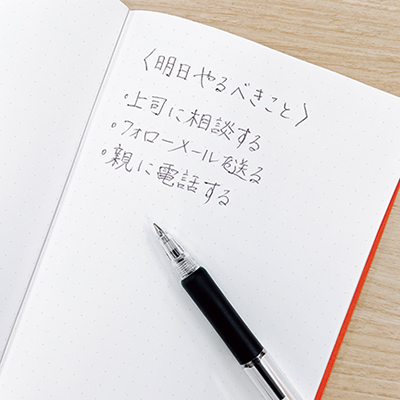 〈明日やるべきこと〉
・上司に相談する
・フォローメールを送る
・親に電話する